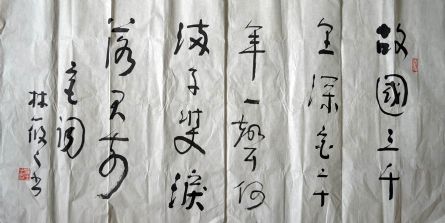 故國三千
里深宮二十
年一聲何
滿子雙淚
落君前